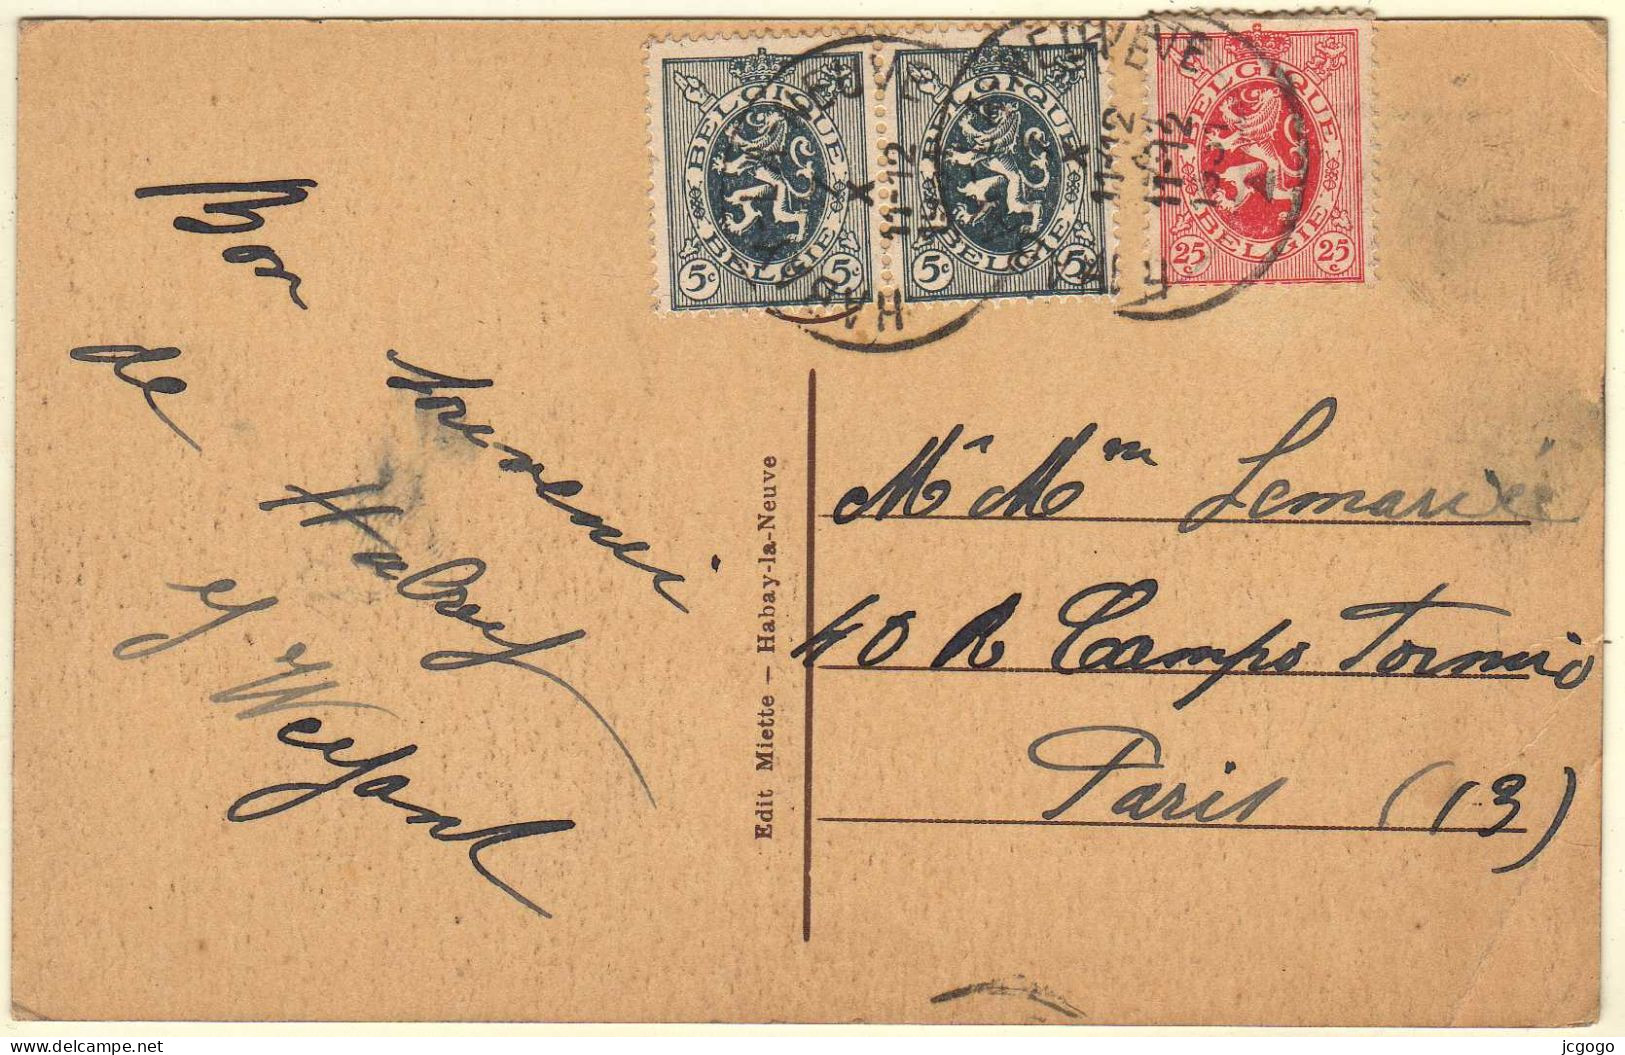 BELGIQUE
BELGIE
5c 5c
BELGIQUE
BELGIE
5c 5c
BELGIQUE
BELGIE
25c 25c
11-12
11-12
11-12
Bon
souvenir
de
Habay
et
Weyant
Edit Miette — Habay-la-Neuve
Mr Mm Lemarié
40 R Campo Formio
Paris (13)
jcgogo